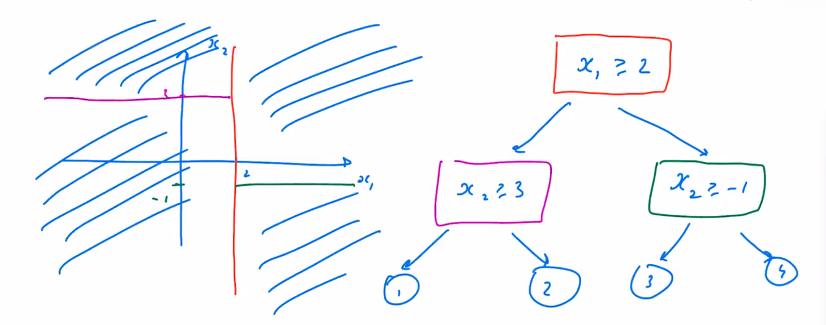 x₂
3
2
x₁
-1
x₁ ≥ 2
x₂ ≥ 3
x₂ ≥ -1
1
2
3
4